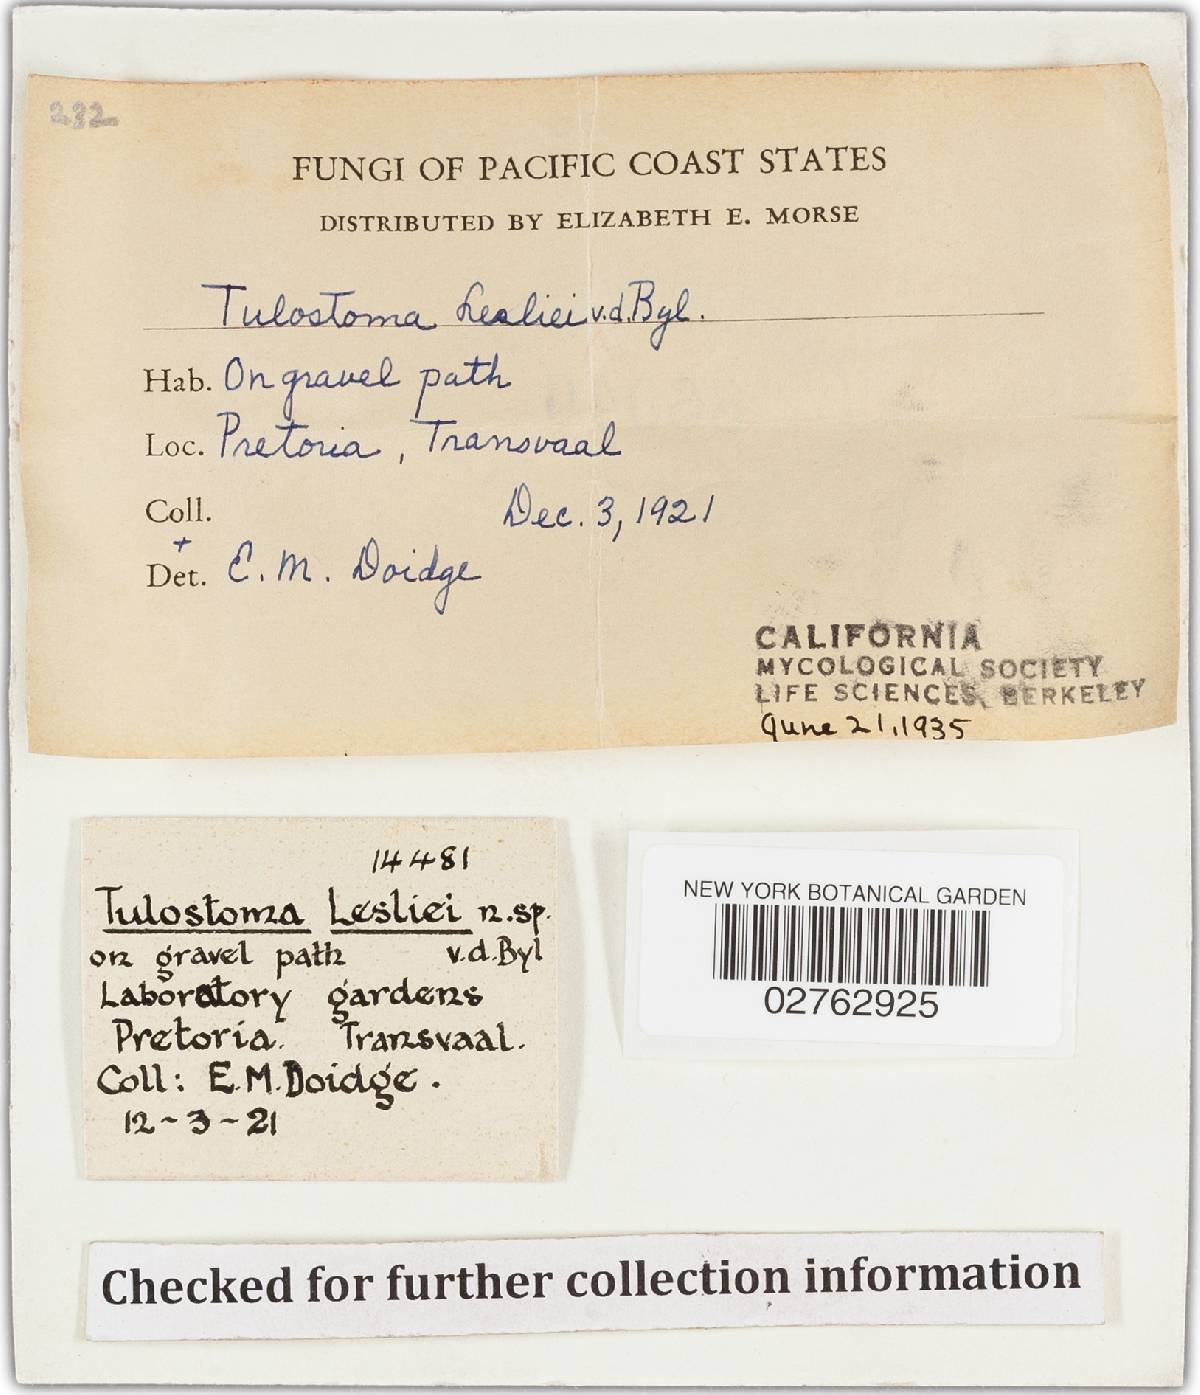 232
FUNGI OF PACIFIC COAST STATES
DISTRIBUTED BY ELIZABETH E. MORSE
Tulostoma Lesliei v.d.Byl.
Hab. On gravel path
Loc. Pretoria, Transvaal
Coll. Dec. 3, 1921
+
Det. E. M. Doidge
CALIFORNIA
MYCOLOGICAL SOCIETY
LIFE SCIENCES, BERKELEY
June 21, 1935
14481
Tulostoma Lesliei n.sp.
on gravel path v.d.Byl
Laboratory gardens
Pretoria. Transvaal.
Coll: E.M.Doidge.
12-3-21
NEW YORK BOTANICAL GARDEN
02762925
Checked for further collection information